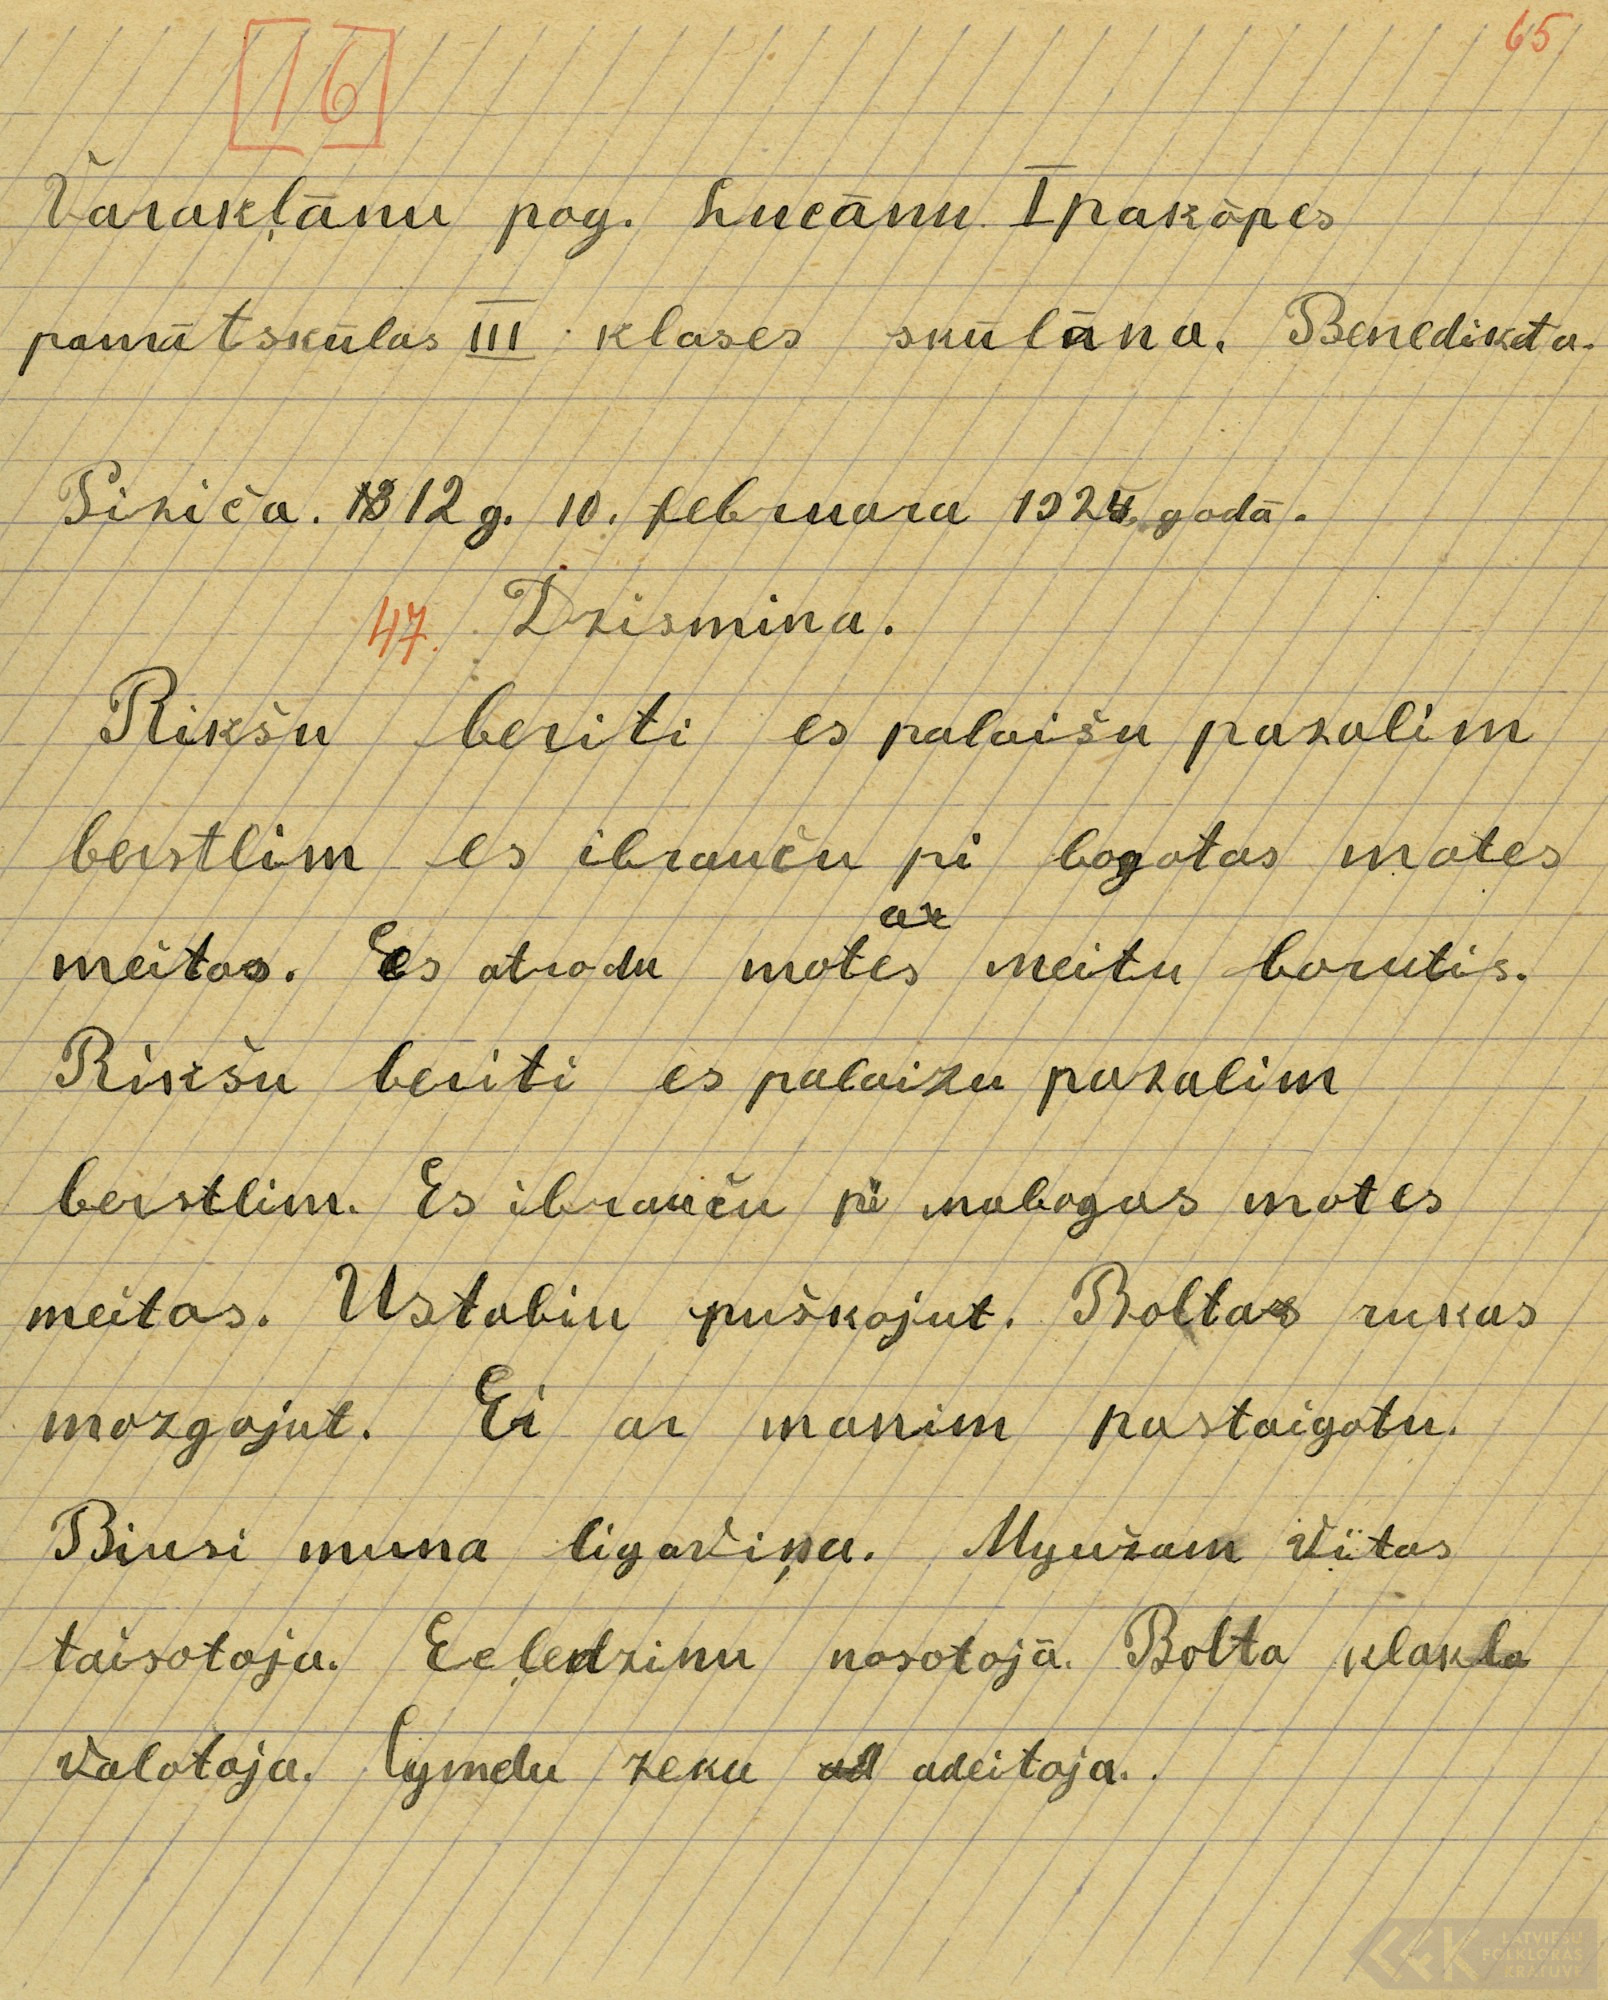 16
65
Varakļānu pag. Lucānu I pakōpes
pamātskūlas III klases skūlāna. Benedikta.
Piziča. 12 g. 10. februara 1924. godā.
47. Dzismina.
Rikšu beriti es palaišu pazalim
berstlim es ibrauču pi bogotas motes
meitas. Es atrodu motes ar meitu borutis.
Rikšu beriti es palaizu pazalim
berstlim. Es ibrauču pi nabogas motes
meitas. Ustobiu puškojut. Boltas rukas
mozgojut. Ei ar manim pastaigotu.
Biusi muna ligaviņa. Myužam vïtas
taisotoja. Eeļedzinu nosotojā. Bolta klakla
valotoja. Cymdu zeku adeitoja.
LATVIEŠU
FOLKLORAS
KRĀTUVE